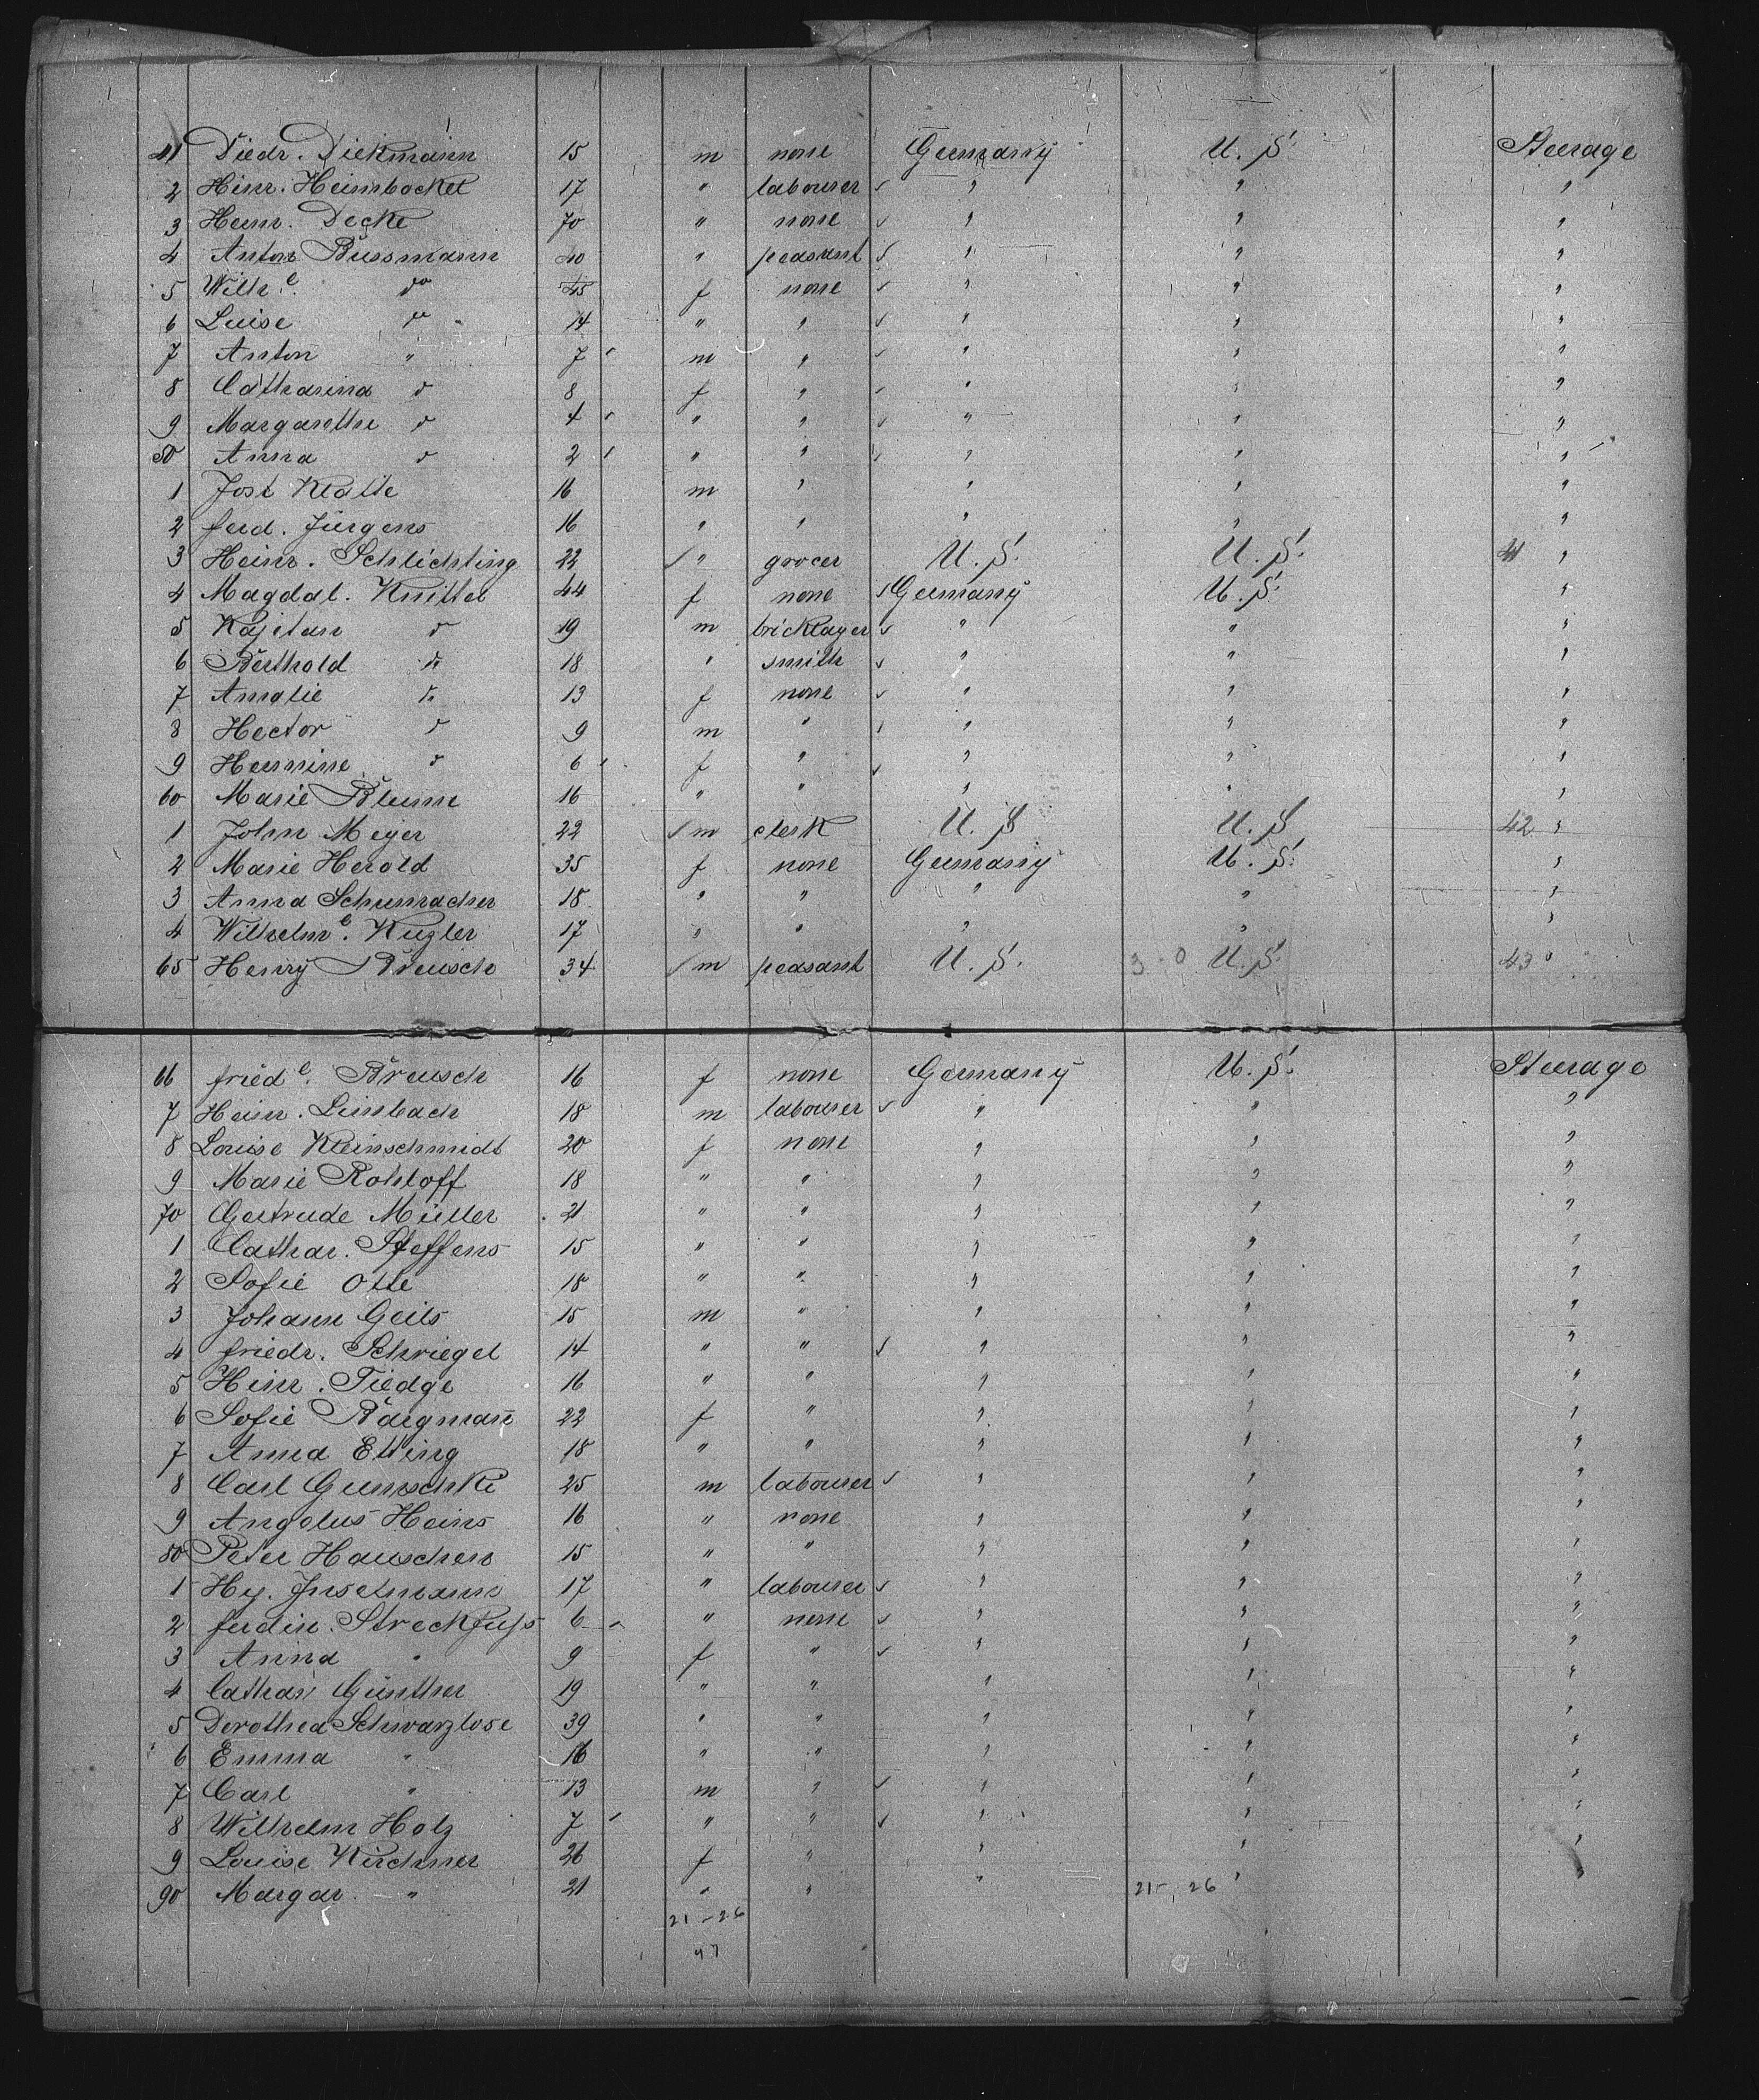 41 Diedr. Diekmann 15 m none Germany U. S. Steerage
2 Hinr. Heimbockel 17 " labourer " " "
3 Heinr. Decke 70 " none " " "
4 Anton Bussmann 40 " peasant " " "
5 Wilhe. do 45 f none " " "
6 Luise do 14 " " " " "
7 Anton " 7 m " " " "
8 Catharina d 8 f " " " "
9 Margarethe d 4 " " " " "
50 Anna d 2 " " " " "
1 Jost Klatte 16 m " " " "
2 Ferd. Jürgens 16 " " " " "
3 Heinr. Schlichting 22 " grocer U. S. U. S. 41 "
4 Magdal. Knittel 44 f none Germany U. S. "
5 Kajetan d 19 m bricklayer " " "
6 Berthold do 18 " smith " " "
7 Amalie do 13 f none " " "
8 Hector d 9 m " " " "
9 Hermine d 6 f " " " "
60 Marie Blum 16 " " " " "
1 John Meyer 22 m clerk U. S U. S 42 "
2 Marie Herold 35 f none Germany U. S. "
3 Anna Schumacher 18 " " " " "
4 Wilhelme. Kugler 17 " " " " "
65 Henry Breusch 34 m peasant U. S. 3 0 U. S. 43 "
66 Friede. Breusch 16 f none Germany U. S. Steerage
7 Heinr. Limbach 18 m labourer " " "
8 Louise Kleinschmidt 20 f none " " "
9 Marie Rohloff 18 " " " " "
70 Gertrude Müller 21 " " " " "
1 Cathar. Steffens 15 " " " " "
2 Sofie Otte 18 " " " " "
3 Johann Geils 15 m " " " "
4 Friedr. Schriegel 14 " " " " "
5 Hinr. Tiedge 16 " " " " "
6 Sofie Bargmañ 22 f " " " "
7 Anna Elting 18 " " " " "
8 Carl Gunschke 25 m labourer " " "
9 Angelus Heins 16 " none " " "
80 Peter Hauschen 15 " " " " "
1 Hy. Inselmann 17 " labourer " " "
2 Ferdin. Streckfuss 6 " none " " "
3 Anna " 9 f " " " "
4 Cathar Günther 19 " " " " "
5 Dorothea Schwarzlose 39 " " " " "
6 Emma " 16 " " " " "
7 Carl " 13 m " " " "
8 Wilhelm Holz 7 " " " " "
9 Louise Kirchner 26 f " " " "
90 Margar. " 21 " " " 21-26 " "
21-26
47